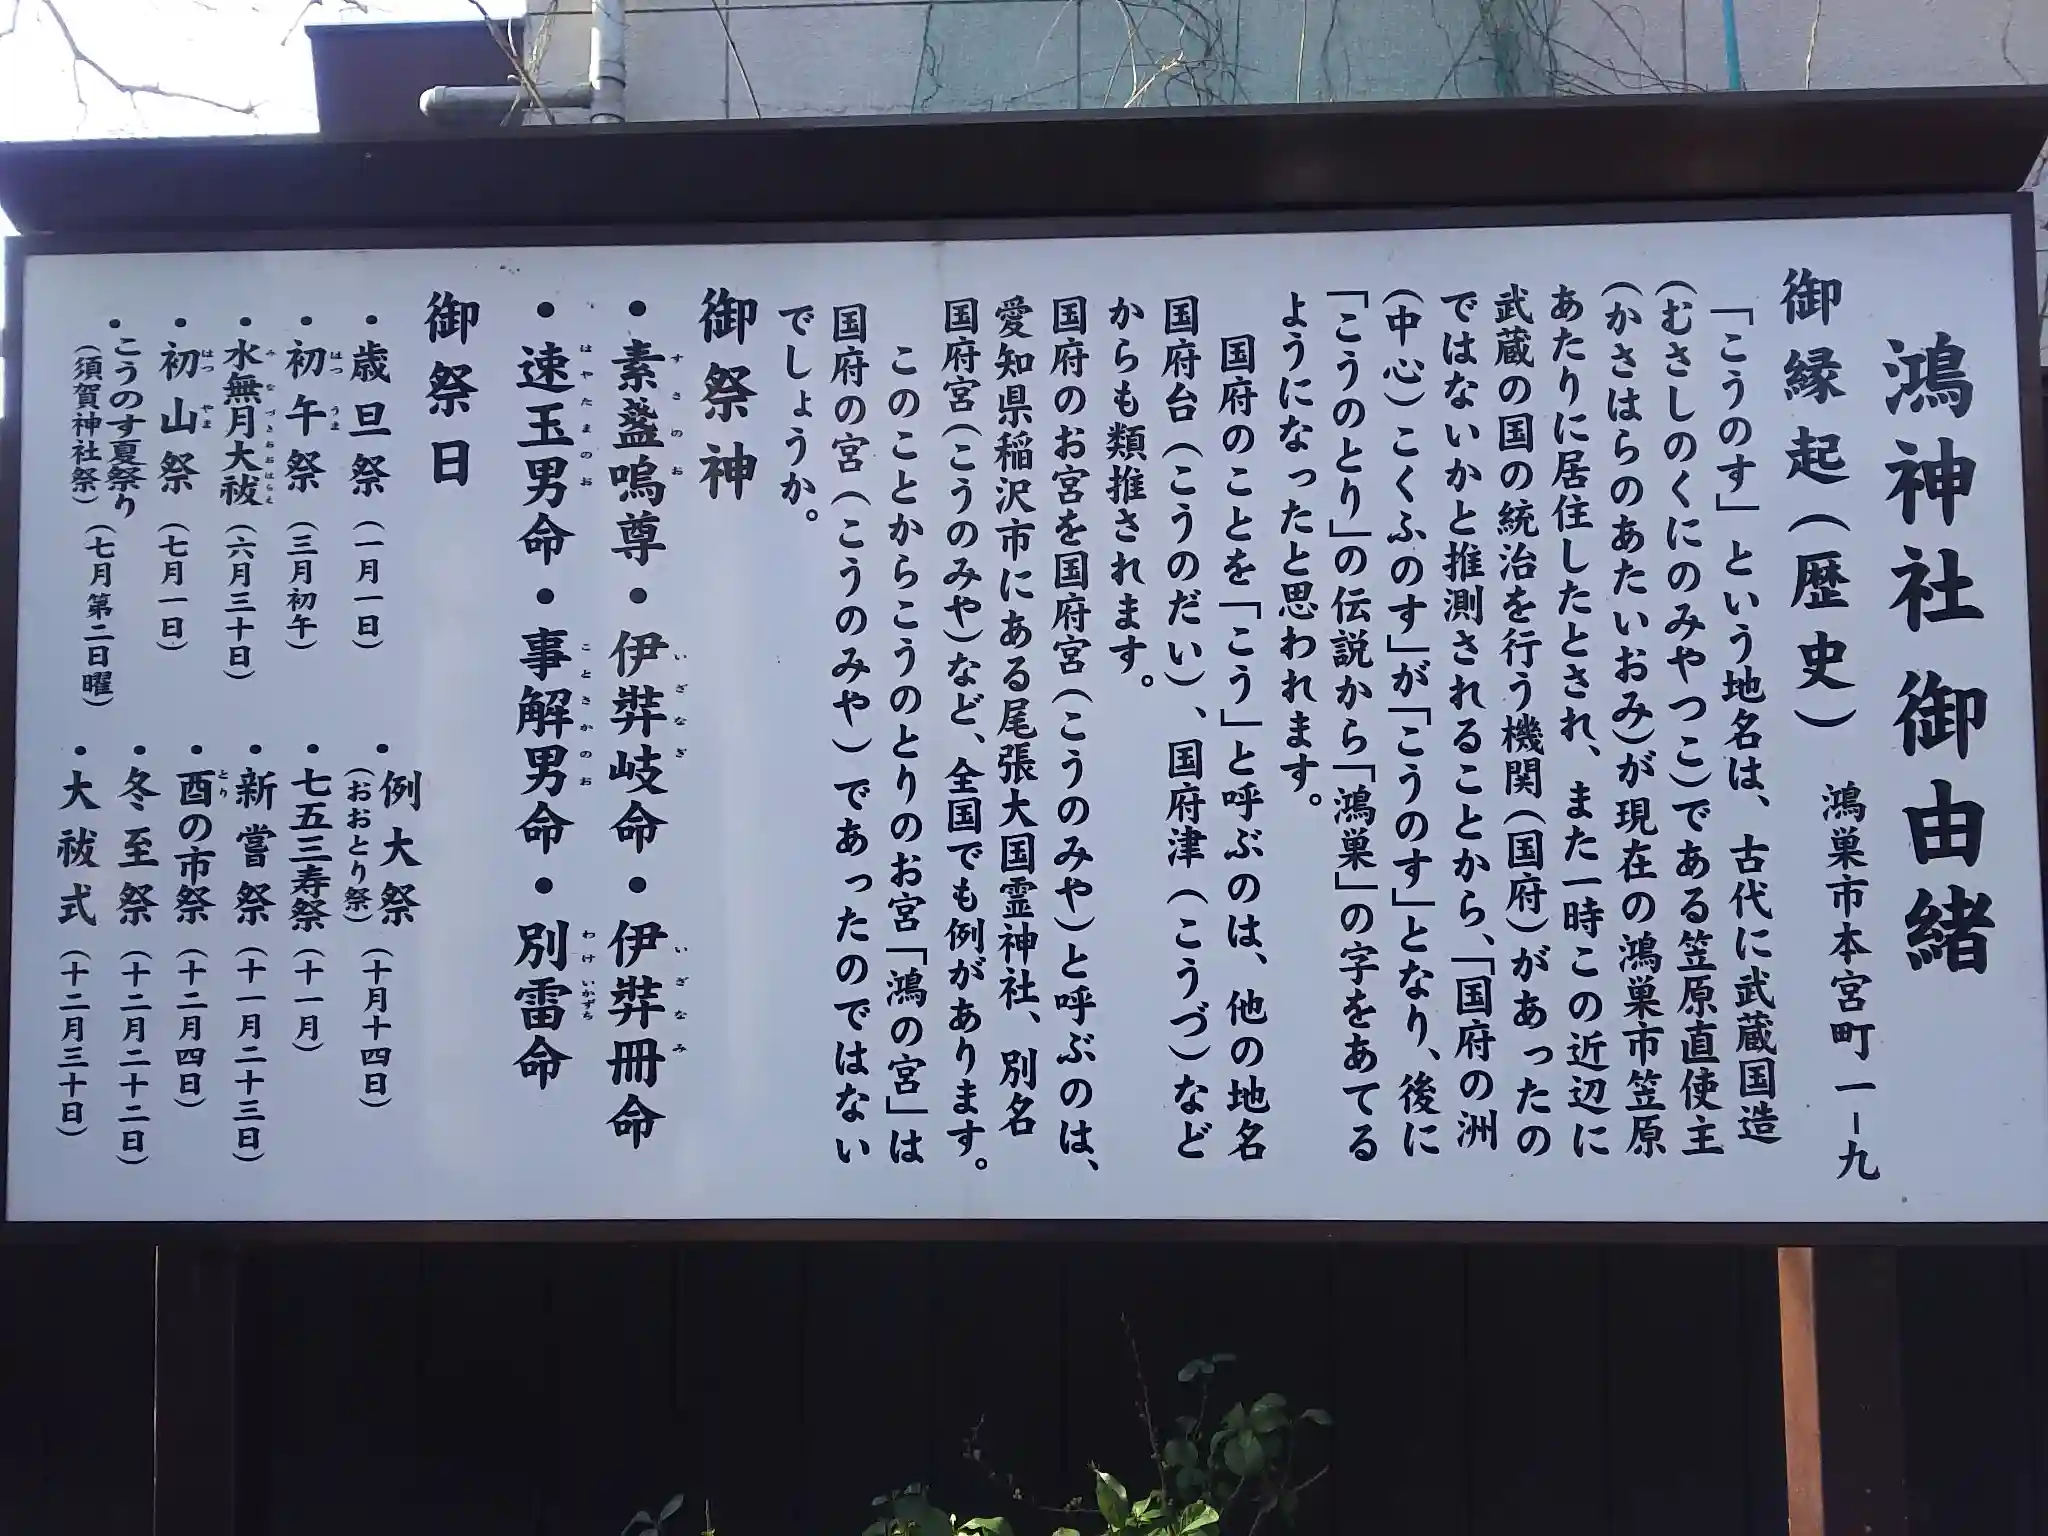 鴻神社御由緒
鴻巣市本宮町一-九
御縁起（歴史）
「こうのす」という地名は、古代に武蔵国造
(むさしのくにのみやつこ)である笠原直使主
(かさはらのあたいおみ)が現在の鴻巣市笠原
あたりに居住したとされ、また一時この近辺に
武蔵の国の統治を行う機関(国府)があったの
ではないかと推測されることから、「国府の洲
(中心)こくふのす」が「こうのす」となり、後に
「こうのとり」の伝説から「鴻巣」の字をあてる
ようになったと思われます。
国府のことを「こう」と呼ぶのは、他の地名
国府台(こうのだい)、国府津(こうづ)など
からも類推されます。
国府のお宮を国府宮(こうのみや)と呼ぶのは、
愛知県稲沢市にある尾張大国霊神社、別名
国府宮(こうのみや)など、全国でも例があります。
このことからこうのとりのお宮「鴻の宮」は
国府の宮(こうのみや)であったのではない
でしょうか。
御祭神
・素盞嗚尊・伊弉岐命・伊弉冊命
すさのお いざなぎ いざなみ
・速玉男命・事解男命・別雷命
はやたまのお ことさかのお わけいかずち
御祭日
・歳旦祭(一月一日)
・初午祭(三月初午)
はつうま
・水無月大祓(六月三十日)
みなづきおおはらえ
・初山祭(七月一日)
はつやま
・こうのす夏祭り
(須賀神社祭)(七月第二日曜)
・例大祭
(おおとり祭)(十月十四日)
・七五三寿祭(十一月)
・新嘗祭(十一月二十三日)
・酉の市祭(十二月四日)
とり
・冬至祭(十二月二十二日)
・大祓式(十二月三十日)